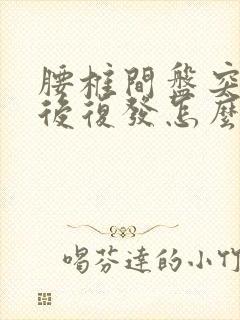 腰椎間盤突
後復發怎麼
喝芬達的小竹